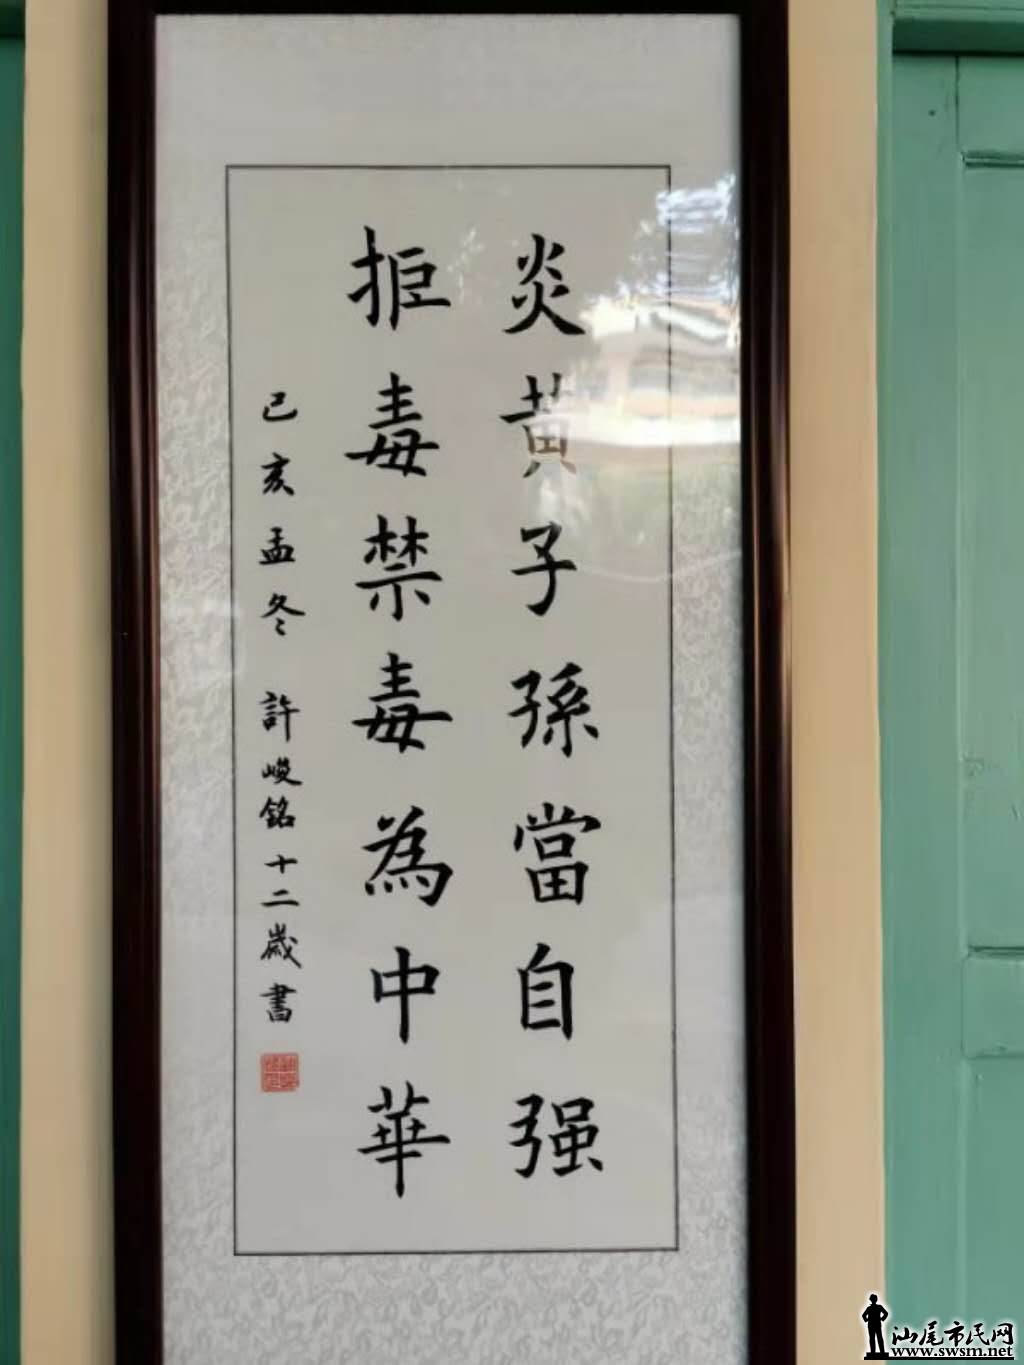 炎黃子孫當自强
拒毒禁毒為中華
己亥孟冬 許峻銘十二歲書
汕尾市民网
www.swsm.net